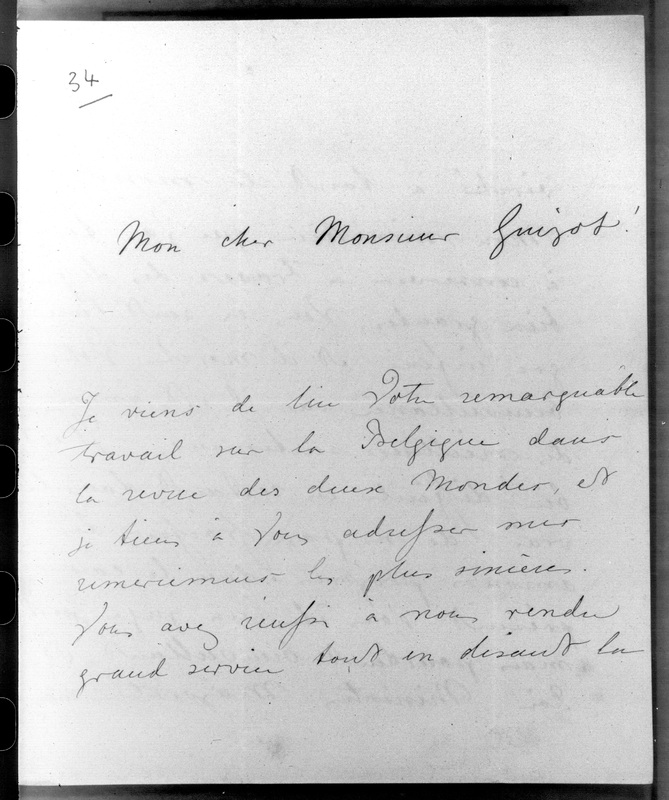 34
Mon cher Monsieur Guizot!
Je viens de lire Votre remarquable
travail sur la Belgique dans
la revue des deux Mondes, et
je tiens à Vous adresser mes
remerciemens les plus sincères.
Vous avez réussi à nous rendre
grand service tout en disant la